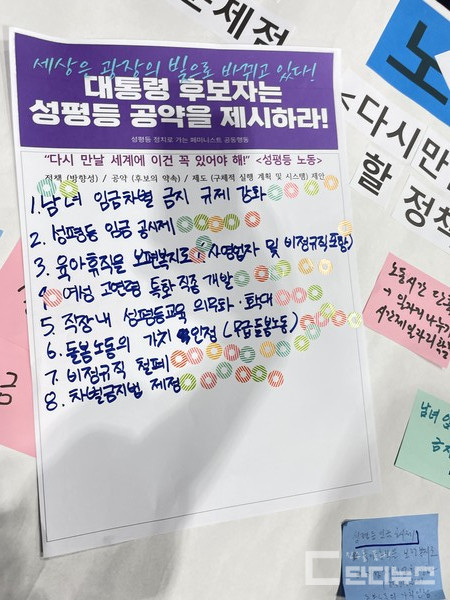 문제점
노
<다시만
할 정책
세상은 광장의 빛으로 바뀌고 있다!
대통령 후보자는
성평등 공약을 제시하라!
성평등 정치로 가는 페미니스트 공동행동
"다시 만날 세계에 이건 꼭 있어야 해!" <성평등 노동>
정책 (방향성) / 공약 (후보의 약속) / 제도 (구체적 실행 계획 및 시스템) 제안
1. 남녀 임금차별 금지 규제 강화
2. 성평등 임금 공시제
3. 육아휴직을 보편복지로 (자영업자 및 비정규직 포함)
4. 여성 고연령 특화 직종 개발
5. 직장 내 성평등교육 의무화·확대
6. 돌봄노동의 가치 인정 (무급돌봄노동)
7. 비정규직 철폐
8. 차별금지법 제정
노동시간 단축
금
남녀 임
금지
단디뉴스